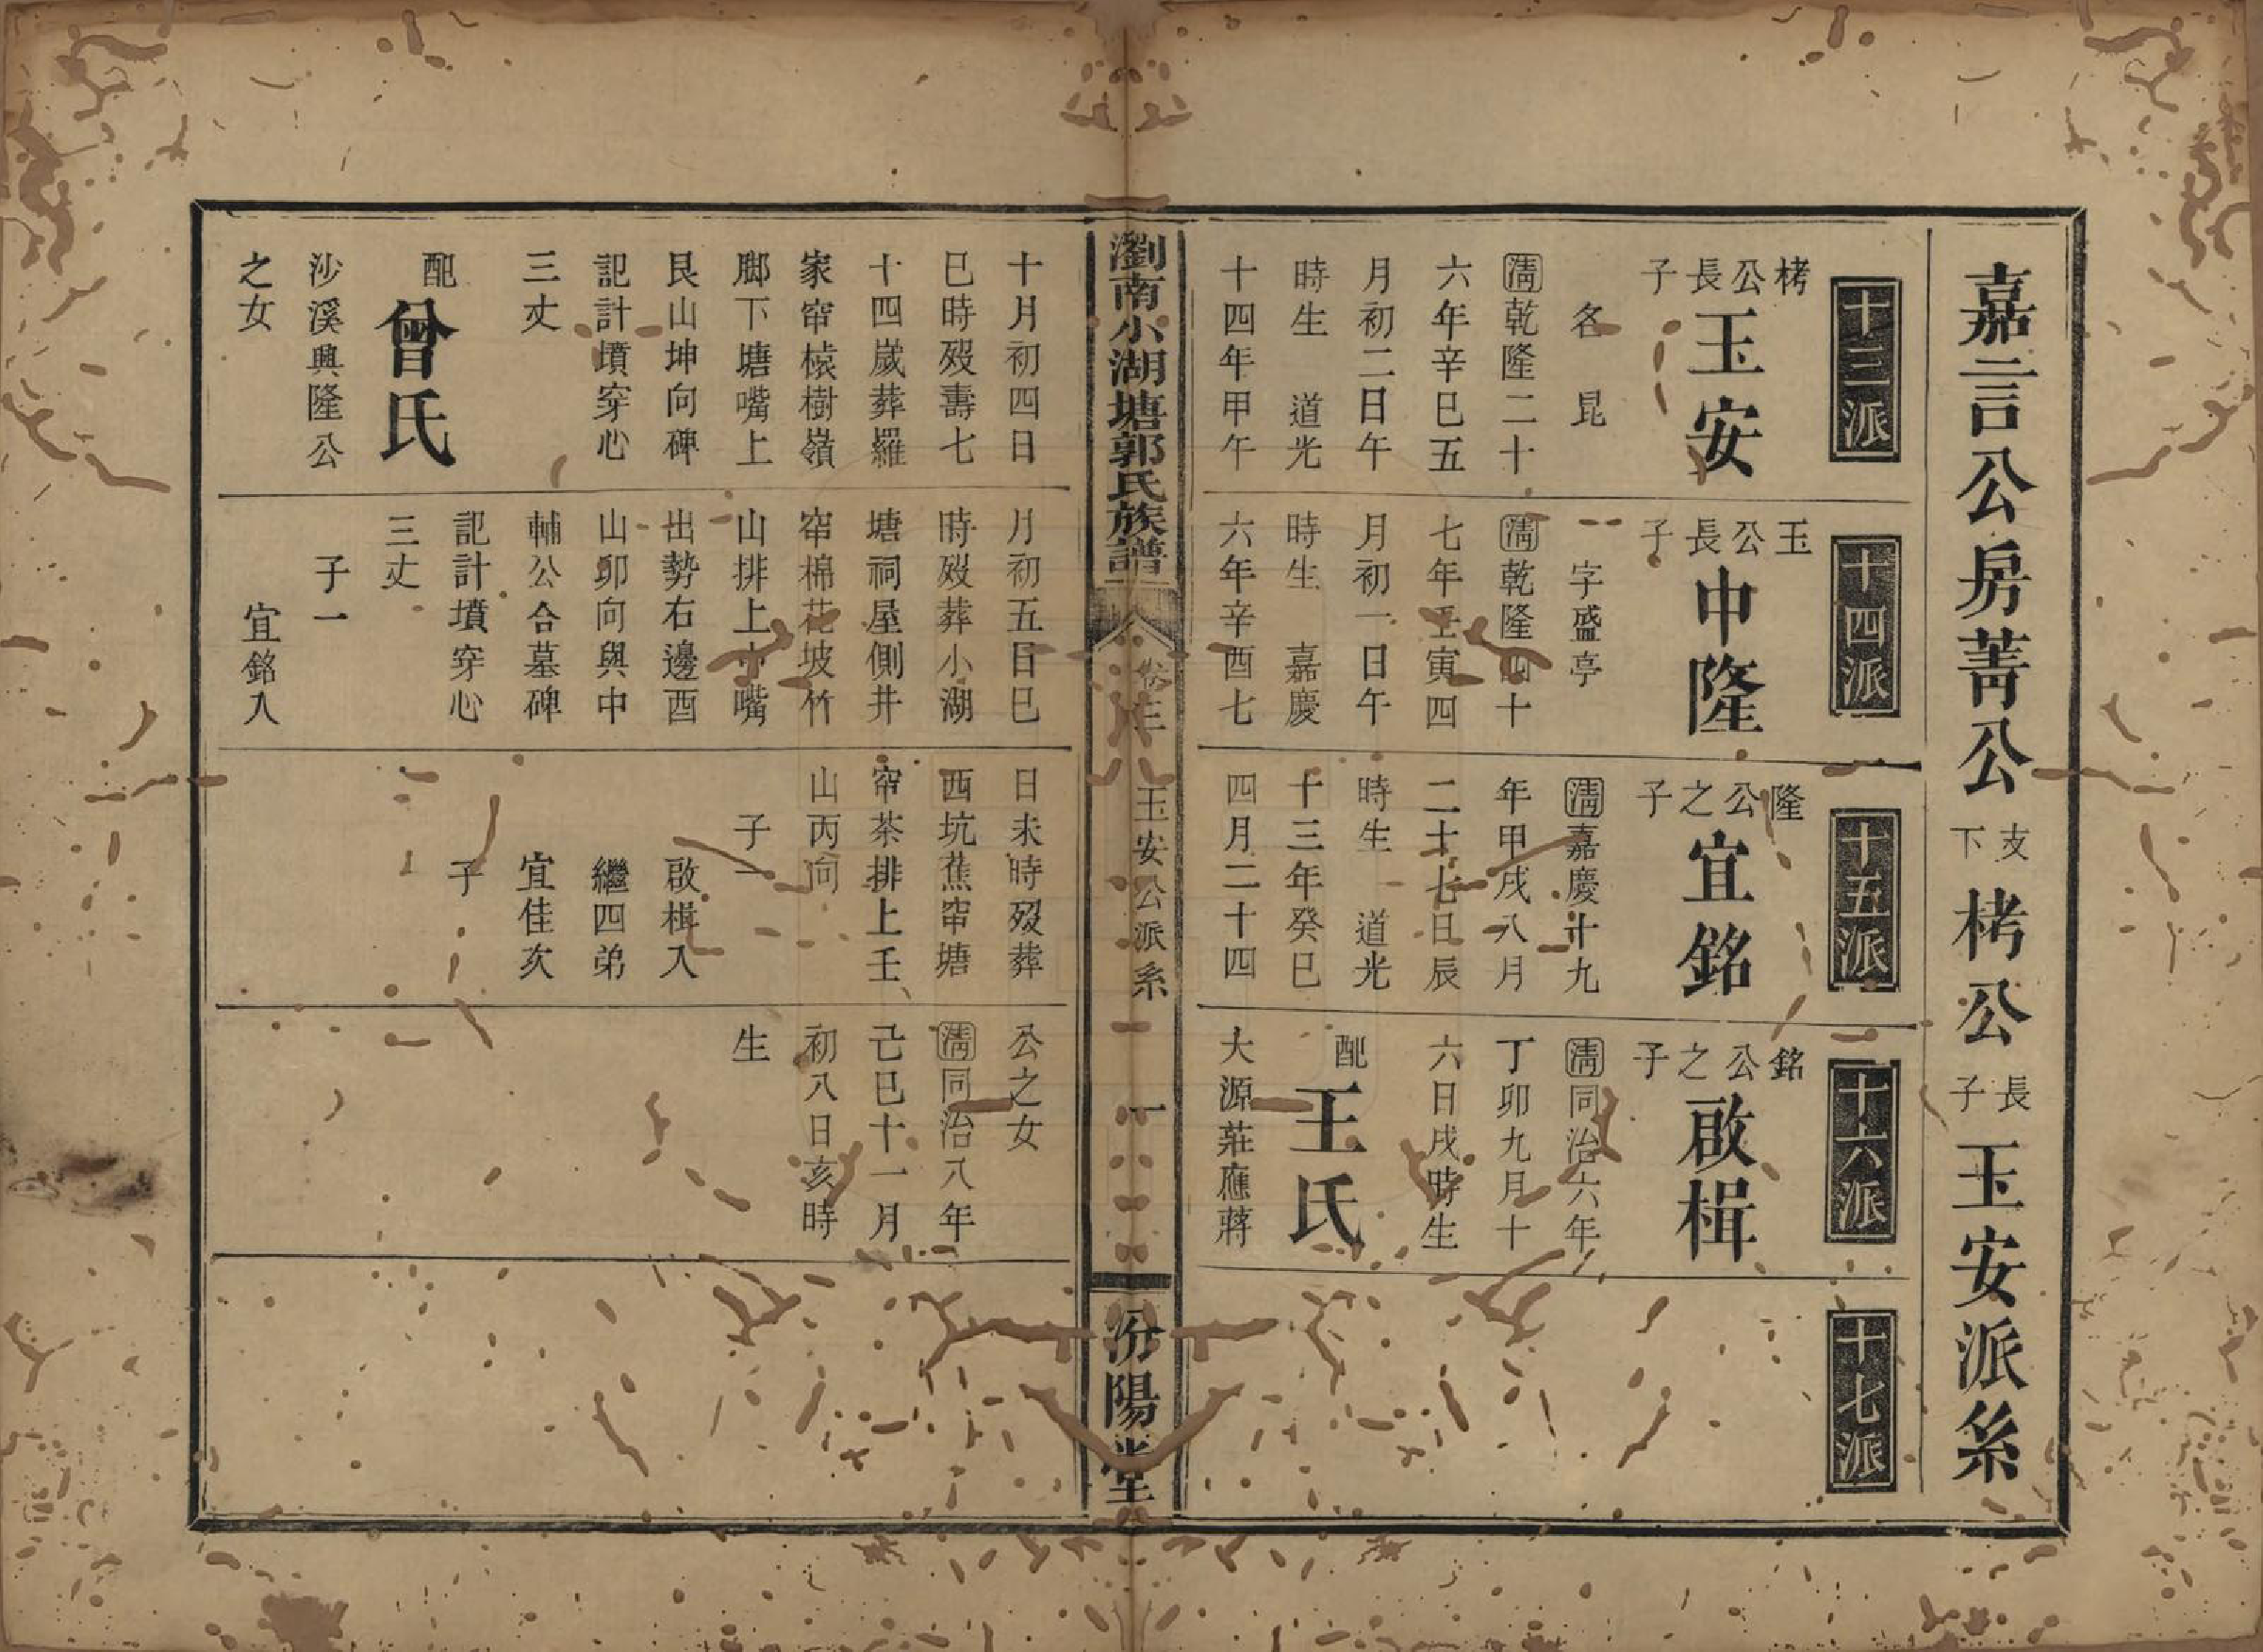 嘉言公房菁公支下栲公長子玉安派系
十三派
栲公長子
玉安
名昆
清乾隆二十
六年辛巳五
月初二日午
時生 道光
十四年甲午
十四派
玉公長子
申隆
字盛亭
清乾隆四十
七年壬寅四
月初一日午
時生 嘉慶
六年辛酉七
十五派
隆公之子
宜銘
清嘉慶十九
年甲戌八月
二十七日辰
時生 道光
十三年癸巳
四月二十四
十六派
銘公之子
啟楫
清同治六年
丁卯九月十
六日戌時生
配
王氏
大源莊應蔣
十七派
瀏南小湖塘郭氏族譜
卷三
玉安公派系
一
汾陽堂
十月初四日
巳時歿壽七
十四歲葬羅
家窂榬樹嶺
腳下塘嘴上
艮山坤向碑
記計墳穿心
三丈
配
曾氏
沙溪興隆公
之女
月初五日巳
時歿葬小湖
塘祠屋側井
窂棉花坡竹
山排上小嘴
出勢右邊酉
山卯向與中
輔公合墓碑
記計墳穿心
三丈
子一
宜銘入
日未時歿葬
西坑蕉窂塘
窂茶排上壬
山丙向
子一
啟楫入
繼四弟
宜佳次
子
公之女
清同治八年
己巳十一月
初八日亥時
生